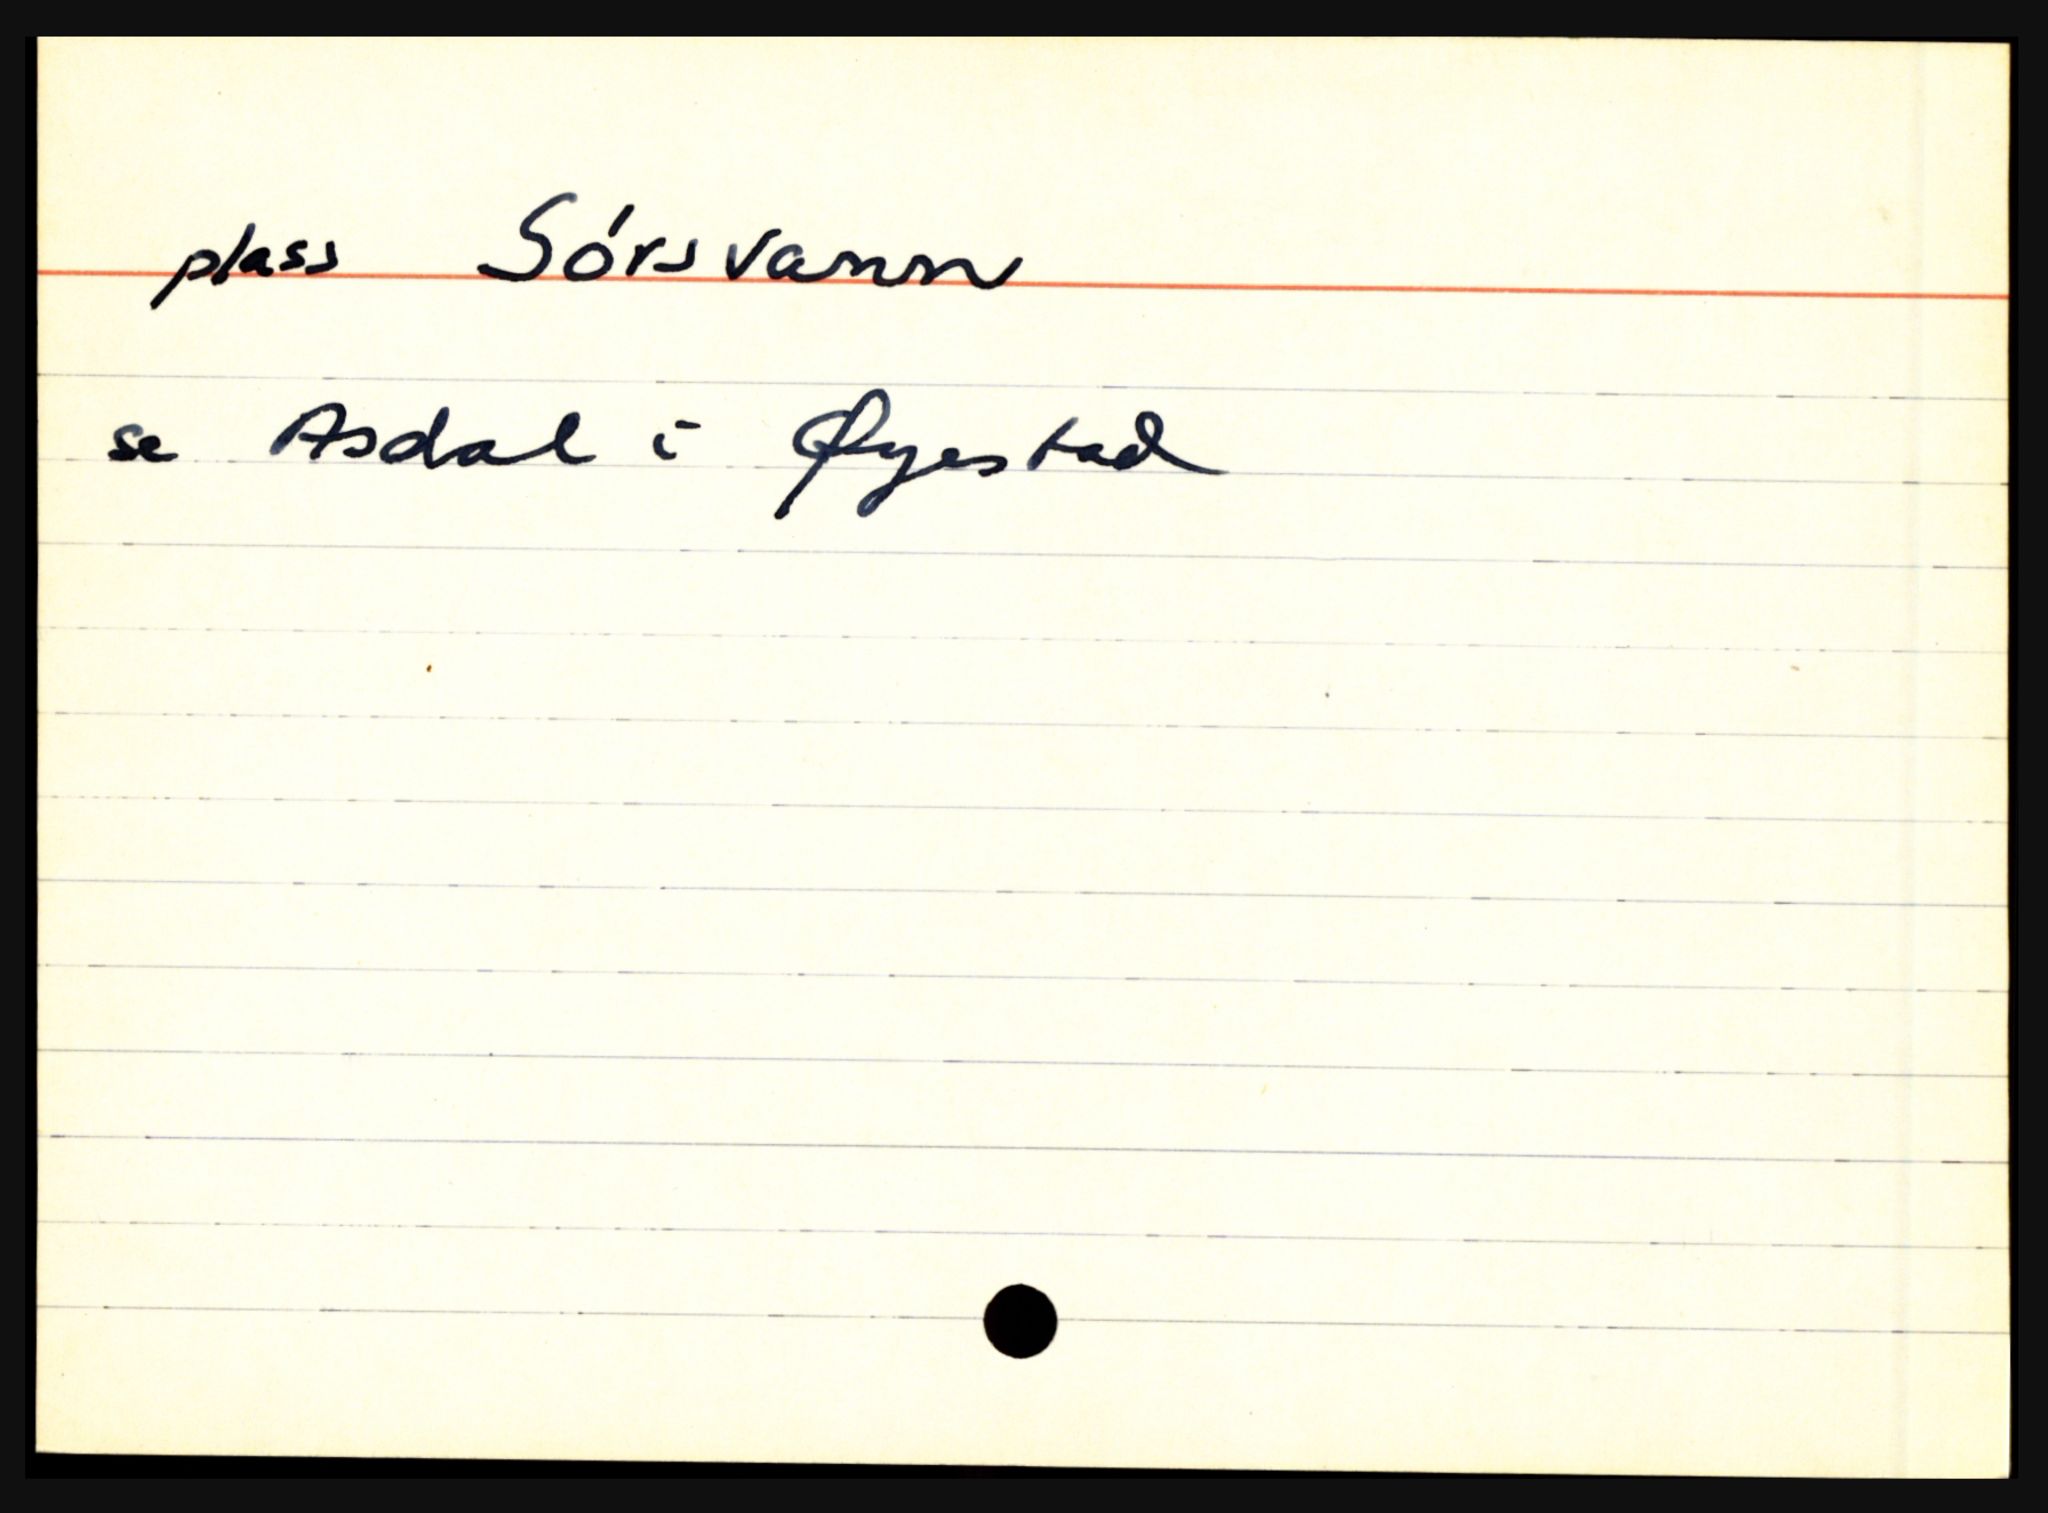 plass Sórsvann
se Asdal i Øyestad